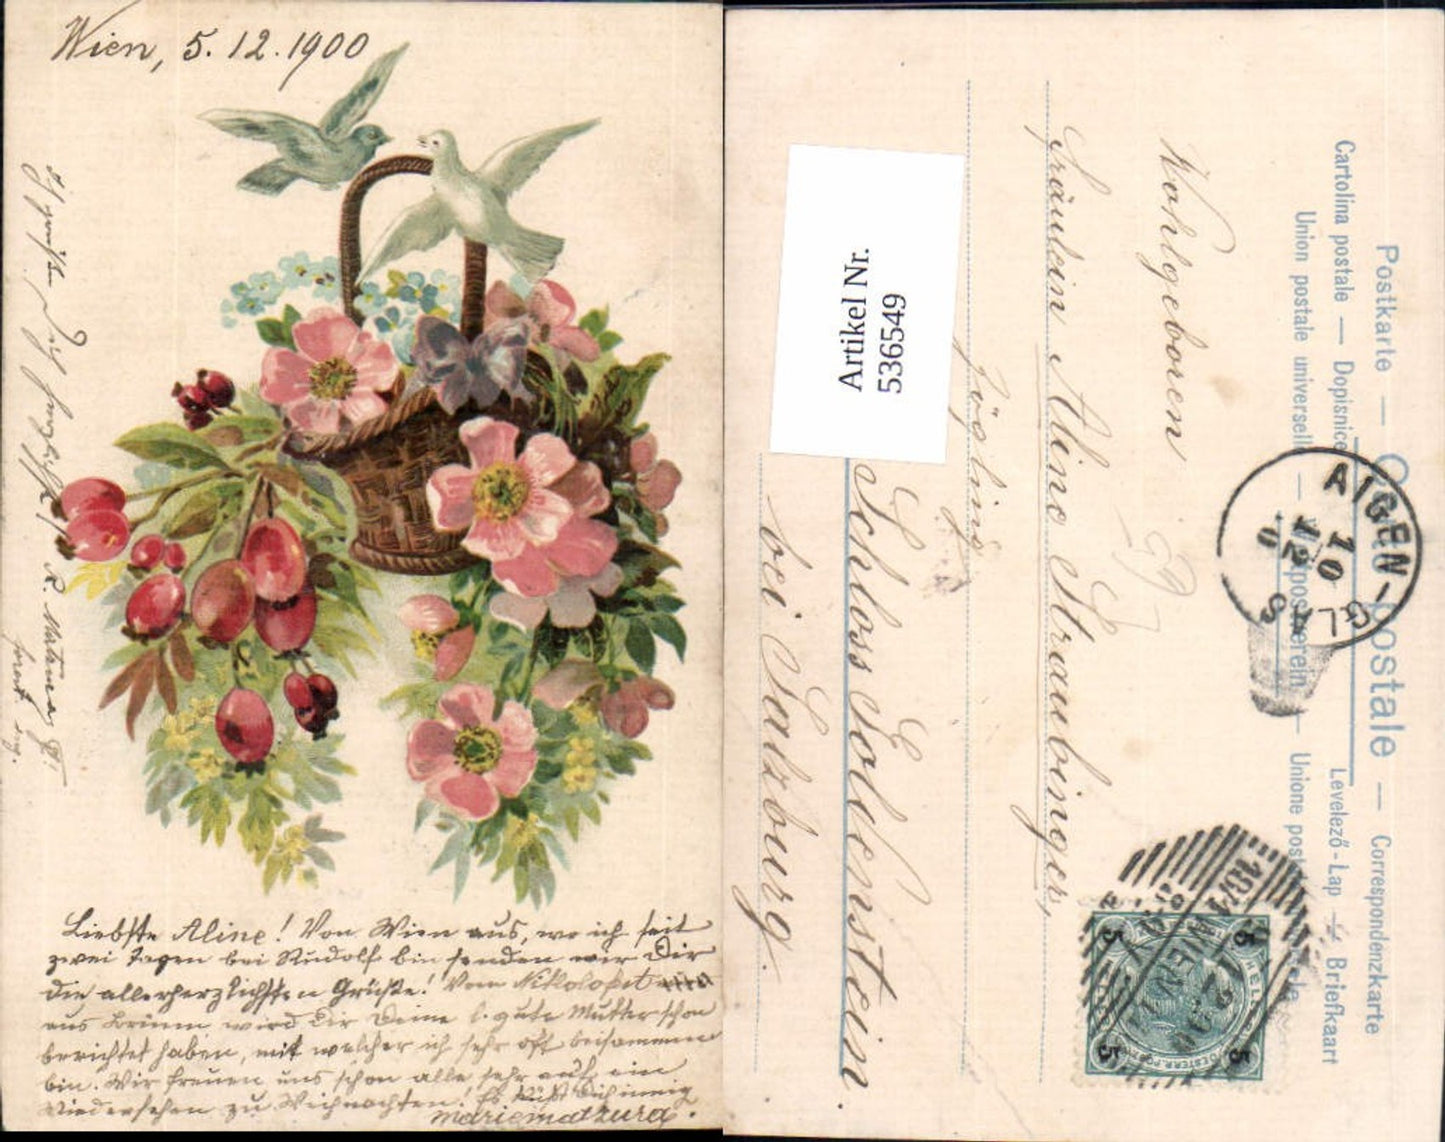 Wien, 5.12.1900
Liebste Aline! Von Wien aus, wo ich seit
zwei Tagen bei Rudolf bin senden wir Dir
die allerherzlichsten Grüße! Vom
aus Brünn wird Dir Deine l. gute Mutter schon
berichtet haben, mit welcher ich sehr oft beisammen
bin. Wir freuen uns schon alle sehr auf ein
Wiedersehen zu Weihnachten! Es küßt Dich innig
Marie
Postkarte — Postale — Correspondenzkarte
Cartolina postale — Dopisnice Levelező-Lap — Briefkaart
Union postale universelle — Unione
AIGEN-GLAS
10
12
0
WIEN
5 5
5 5
Wohlgeboren
Fräulein Aline Straubinger,
Zögling
Schloss Goldenstein
bei Salzburg.
Artikel Nr.
536549